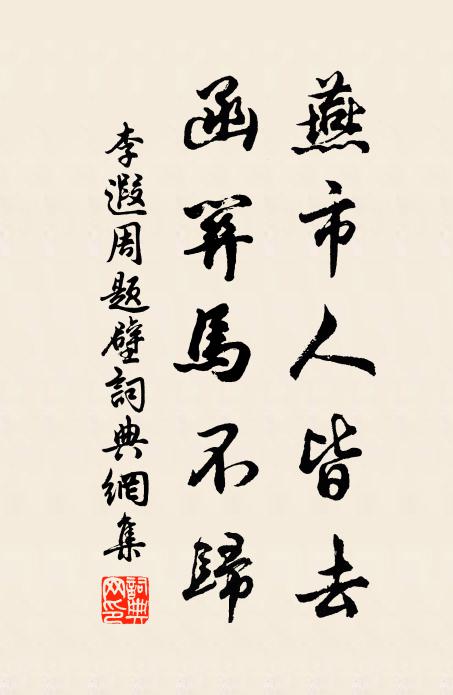 燕市人皆去
函關馬不歸
李遐周題壁詞典網集
詞典网印